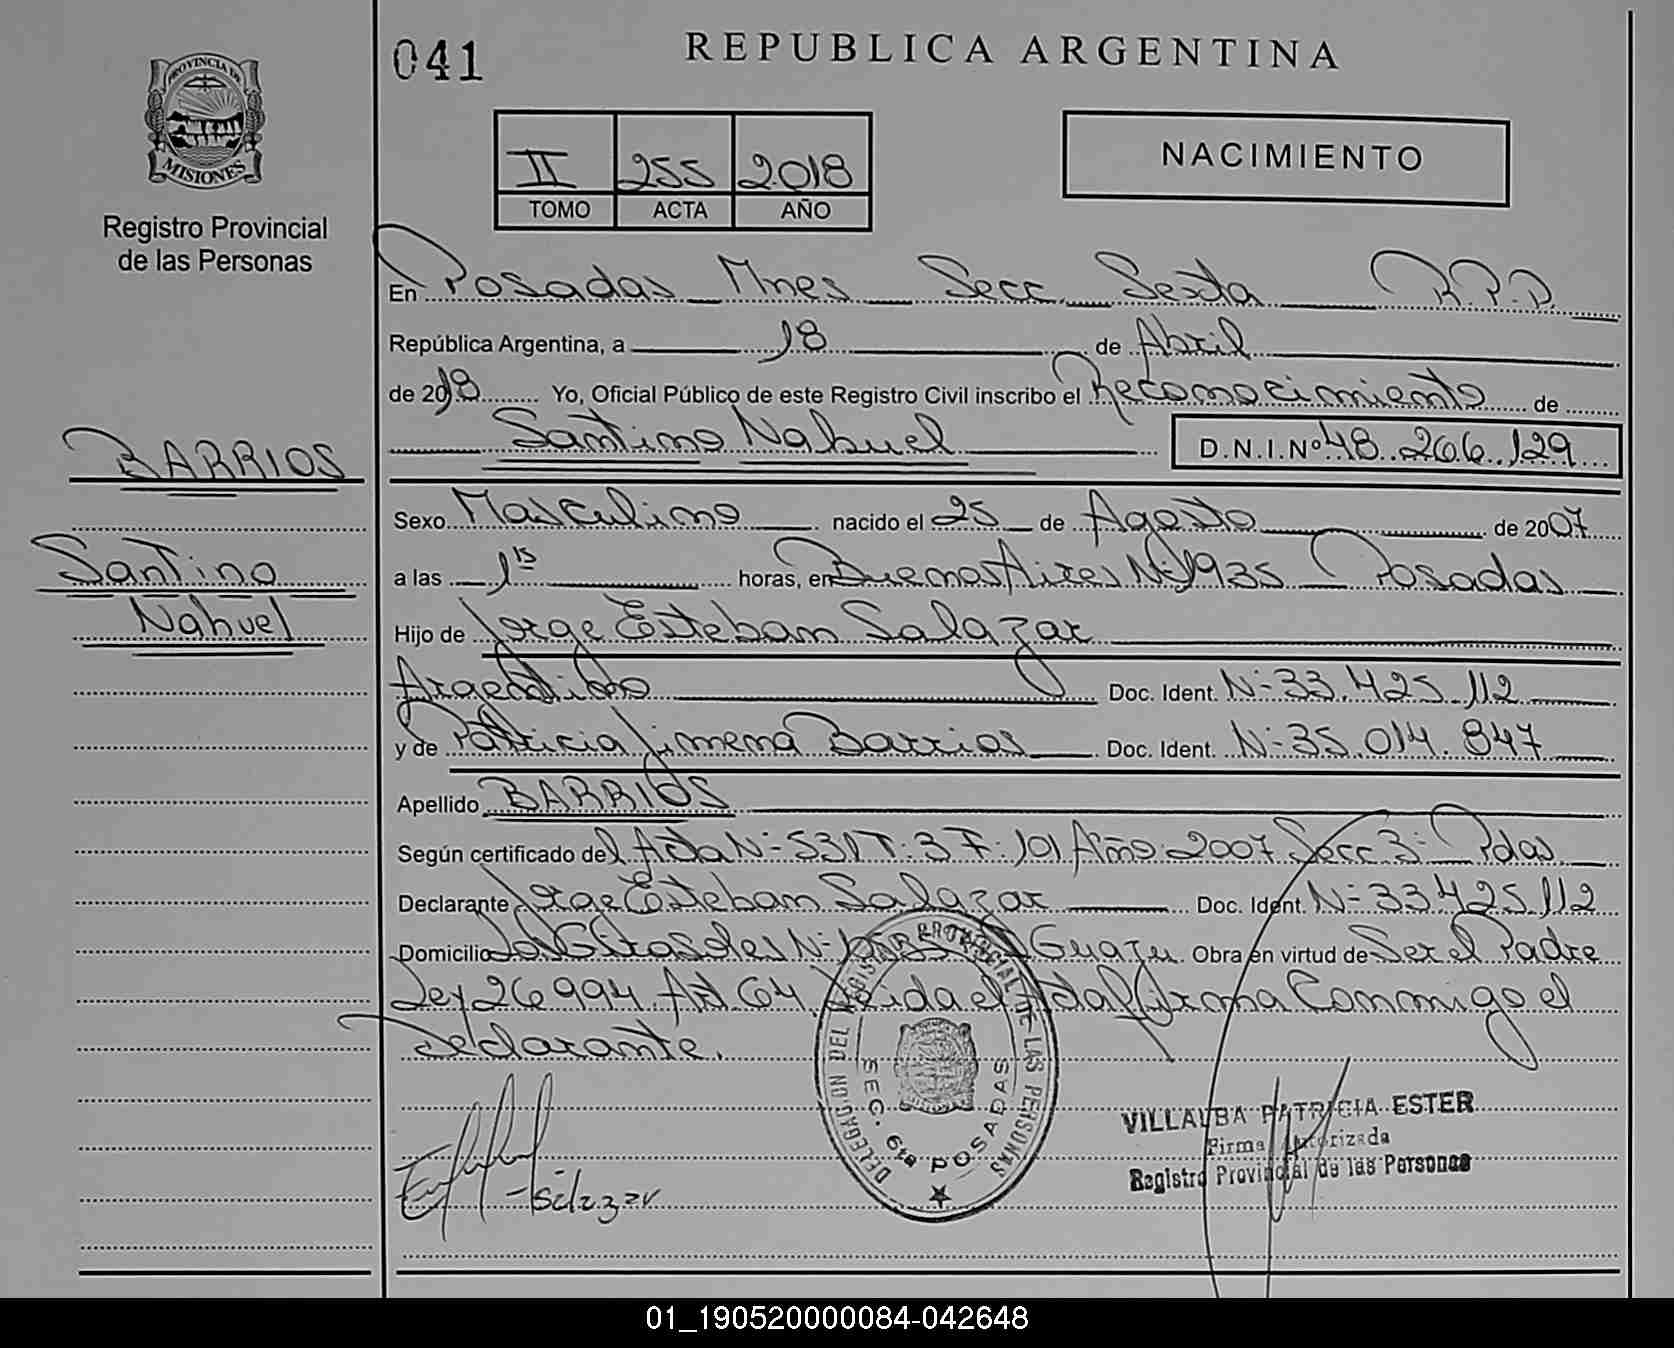 PROVINCIA DE
MISIONES
Registro Provincial
de las Personas
BARRIOS
Santino
Nahuel
041
REPUBLICA ARGENTINA
II 255 2018
TOMO ACTA AÑO
NACIMIENTO
En Posadas Mnes Secc Sexta R.P.P.
República Argentina, a 18 de Abril
de 2018 Yo, Oficial Público de este Registro Civil inscribo el Reconocimiento de
Santino Nahuel D.N.I.Nº 48.266.129
Sexo Masculino nacido el 25 de Agosto de 2007
a las 1 15 horas, en Buenos Aires Nº 1935 Posadas
Hijo de Jorge Esteban Salazar
Argentino Doc. Ident. Nº 33.425.112
y de Patricia Jimena Barrios Doc. Ident. Nº 35.014.847
Apellido BARRIOS
Según certificado del Acta Nº 531 T: 3 F: 101 Año 2007 Secc 3º Pdas
Declarante Jorge Esteban Salazar Doc. Ident. Nº 33425.112
Domicilio Los Girasoles Nº Guazu Obra en virtud de Ser el Padre
Ley 26994 Art 64 Leida el Acta firma Conmigo el
declarante.
Salazar
DELEGACION DEL REGISTRO PROVINCIAL DE LAS PERSONAS
SEC. 6ta POSADAS
VILLALBA PATRICIA ESTER
Firma Autorizada
Registro Provincial de las Personas
01_190520000084-042648